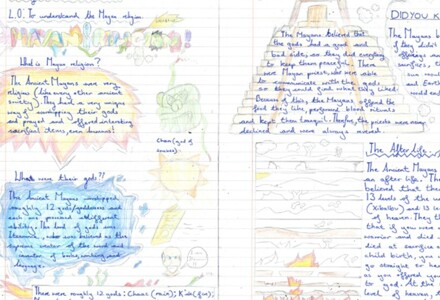 L.O. To understand the Mayan religion.
MAYAN RELIGION!
What is Mayan religion?
The Ancient Mayans were very
religious (like many other ancient
society). They had a very unique
way of worshipping their gods
and prayed and offered interesting
sacrificial items, even humans!
Chaac (god of
What were their gods??
The Ancient Mayans worshipped
roughly 12 gods/goddesses and
each one possessed a different
ability. The lord of gods was
Itzamna, who was believed as the
supreme creator of the world and
inventor of books, writing and
There were roughly 12 gods: Chaac (rain), K'in (fire),
The Mayans believed that
the gods had a good and
bad side, so they did everything
to keep them peaceful. There
were Mayan priests, who were able
to communicate with the gods
so they would find what they liked.
Because of this, the Mayans offered the
food they like, performed blood sacrifices
and kept them tranquil. Therefore, the priests were never
declined and were always moved.
DID YOU K
The Mayans b
if they didn't
offerings an
sacrifices, t
sun would
and Earth
would end
The After Life
The Ancient Mayans
an after life. Th
believed that there
13 levels of the u
(xibalba) and 13 le
of heaven. They t
that if you were a
warrior and died
died at sacrifice o
child birth, you w
go straight to hea
as you offered you
to god. At the
level of heaven,